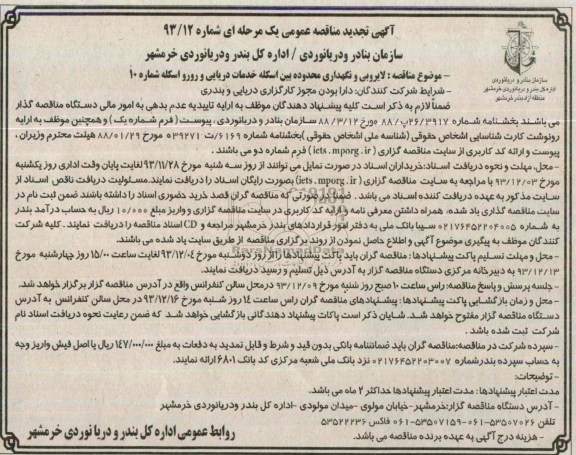 آگهی تجدید مناقصه عمومی یک مرحله ای شماره ۹۳/۱۲
سازمان بنادر ودریانوردی / اداره کل بندر ودریانوردی خرمشهر
سازمان بنادر و دریانوردی
اداره کل بندر و دریانوردی خرمشهر
منطقه آزاد بندر خرمشهر
- موضوع مناقصه : لایروبی و نگهداری محدوده بین اسکله خدمات دریایی و رورو اسکله شماره ۱۰
- شرایط شرکت کنندگان: دارا بودن مجوز کارگزاری دریایی و بندری
ضمناً لازم به ذکر است کلیه پیشنهاد دهندگان موظف به ارایه تاییدیه عدم بدهی به امور مالی دستگاه مناقصه گذار
می باشند بخشنامه شماره ۲۶/۳۹۱۷/پ/۸۸ مورخ ۸۸/۳/۱۲ سازمان بنادر و دریانوردی ، پیوست ( فرم شماره یک ) و همچنین موظف به ارایه
رونوشت کارت شناسایی اشخاص حقوقی (شناسه ملی اشخاص حقوقی )بخشنامه شماره ۶۱۶۹/ت ۰۳۹۲۷۱ مورخ ۸۸/۰۱/۲۹ هیئت محترم وزیران ،
پیوست و ارائه کد کاربری از سایت مناقصه گزاری ( iets.mporg.ir ) فرم شماره دو می باشند .
-محل، مهلت و نحوه دریافت اسناد:خریداران اسناد در صورت تمایل می توانند از روز سه شنبه مورخ ۹۳/۱۱/۲۸ لغایت پایان وقت اداری روز یکشنبه
مورخ ۹۳/۱۲/۰۳ با مراجعه به سایت مناقصه گزاری ( iets.mporg.ir) بصورت رایگان اسناد را دریافت نمایند.مسئولیت دریافت ناقص اسناد از
سایت مذکور به عهده دریافت کننده اسناد می باشد . ضمناً در صورتی که مناقصه گران قصد خرید حضوری اسناد را داشته باشند ضمن ثبت نام در
سایت مناقصه گذاری یاد شده، همراه داشتن معرفی نامه و ارایه کد کاربری در سایت مناقصه گزاری و واریز مبلغ ۱۰/۰۰۰ ریال به حساب درآمد بندر
به شماره ۰۲۱۷۶۴۵۲۲۰۴۰۰۵ سیبا بانک ملی به دفتر امور قراردادهای بندر خرمشهر مراجعه و CD اسناد مناقصه را دریافت نمایند . کلیه شرکت
کنندگان موظف به پیگیری موضوع آگهی و اطلاع حاصل نمودن از روند برگزاری مناقصه از طریق سایت یاد شده می باشند.
-محل و مهلت تسلیم پاکت پیشنهادها : مناقصه گران باید پاکت پیشنهادها رااز روز دوشنبه مورخ ۹۳/۱۲/۰۴ لغایت ساعت ۱۵/۰۰ روز چهارشنبه مورخ
۹۳/۱۲/۱۳ به دبیرخانه مرکزی دستگاه مناقصه گزار به آدرس ذیل تسلیم و رسید دریافت نمایند.
- جلسه پرسش و پاسخ مناقصه: راس ساعت ۱۰ صبح روز شنبه مورخ ۹۳/۱۲/۰۹ درمحل سالن کنفرانس واقع در آدرس مناقصه گزار برگزار خواهد شد.
- محل و زمان بازگشایی پاکت پیشنهادها: پیشنهادهای مناقصه گران راس ساعت ۱۴ روز شنبه مورخ ۹۳/۱۲/۱۶ در محل سالن کنفرانس به آدرس
دستگاه مناقصه گزار مفتوح خواهد شد. شایان ذکر است پاکات پیشنهاد دهندگانی بازگشایی خواهد شد که ضمن رعایت نحوه دریافت اسناد نام
شرکت ثبت شده باشد .
- سپرده شرکت در مناقصه:مناقصه گران باید ضمانتنامه بانکی بدون قید و شرط و قابل تمدید به دفعات به مبلغ ۱۴۷/۰۰۰/۰۰۰ ریال یا اصل فیش واریز وجه
به حساب سپرده بندرشماره ۰۲۱۷۶۴۵۲۲۰۳۰۰۷ نزد بانک ملی شعبه مرکزی کد بانک ۶۸۰۱ ارائه نمایند.
- توضیحات:
مدت اعتبار پیشنهادها: مدت اعتبار پیشنهادها حداکثر ۲ ماه می باشد.
- آدرس دستگاه مناقصه گزار:خرمشهر-خیابان مولوی -میدان مولوی -اداره کل بندر ودریانوردی خرمشهر
تلفن ۵۳۵۰۷۰۲۶-۰۶۱ ۵۳۵۰۷۱۵۹-۰۶۱ فاکس ۵۳۵۲۲۲۳۶
- هزینه درج آگهی به عهده برنده مناقصه می باشد.
روابط عمومی اداره کل بندر و دریا نوردی خرمشهر